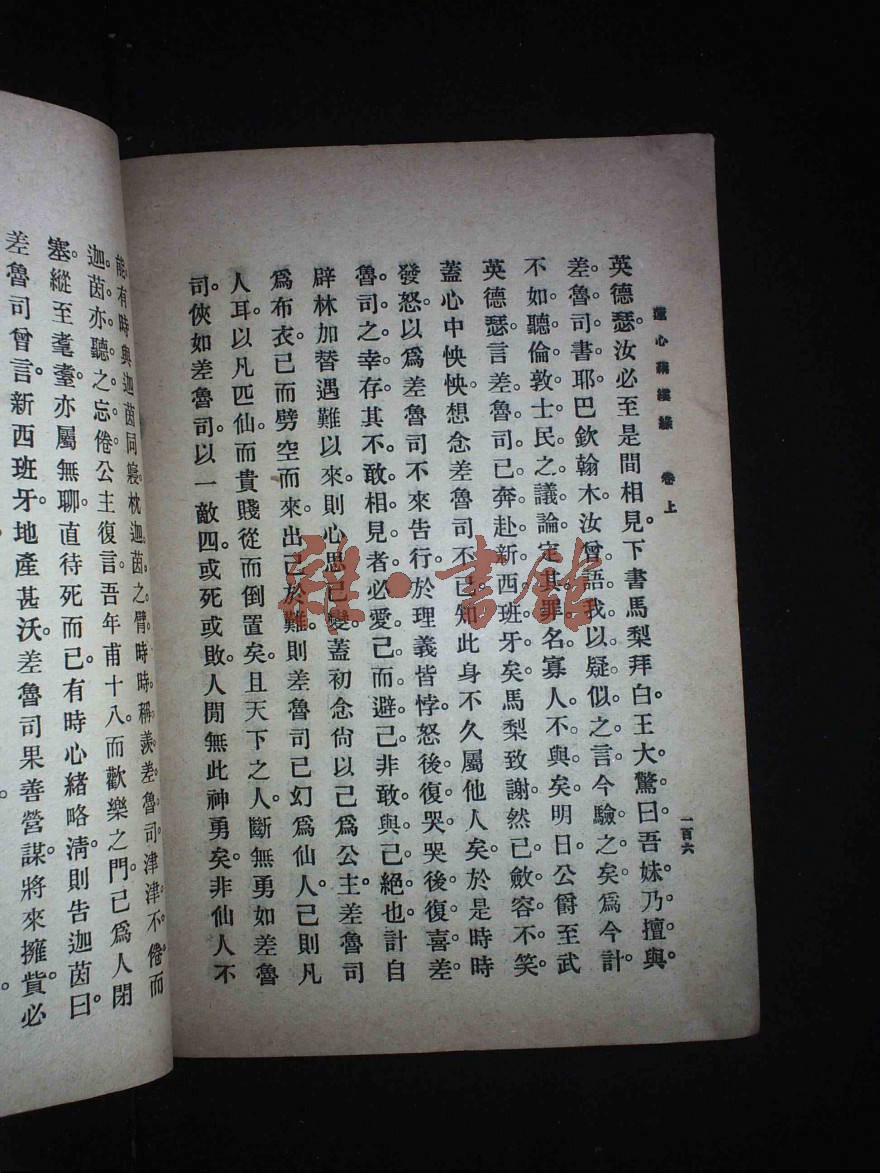 蓮心藕縷緣　卷上
一百六
英德瑟汝必至是間相見。下書馬梨拜白王大驚曰。吾妹乃擅與。
差魯司書耶。巴欽翰木汝曾語我以疑似之言今驗之矣。爲今計。
不如聽倫敦士民之議論。定其罪名。寡人不與矣。明日公爵至武
英德瑟。言差魯司已奔赴新西班牙矣。馬梨致謝。然已斂容不笑。
蓋心中怏怏。想念差魯司不已。知此身不久屬他人矣。於是時時
發怒。以爲差魯司不來告行。於理義皆悖。怒後復哭。哭後復喜。差
魯司之幸存。其不敢相見者。必愛己而避己。非敢與己絕也。計自
辟林加替遇難以來。則心思已變。蓋初念尙以己爲公主。差魯司
爲布衣。已而劈空而來。出己於難。則差魯司已幻爲仙人。己則凡
人耳。以凡匹仙。而貴賤從而倒置矣。且天下之人。斷無勇如差魯
司。俠如差魯司。以一敵四。或死或敗。人間無此神勇矣。非仙人不
能。有時與迦茵同寢。枕迦茵之臂。時時稱羨差魯司。津津不倦。而
迦茵亦聽之忘倦。公主復言。吾年甫十八。而歡樂之門。已爲人閉
塞。縱至耄耋。亦屬無聊。直待死而已。有時心緒略淸。則告迦茵曰。
差魯司曾言。新西班牙地產甚沃。差魯司果善營謀。將來擁貲必
雜·書館